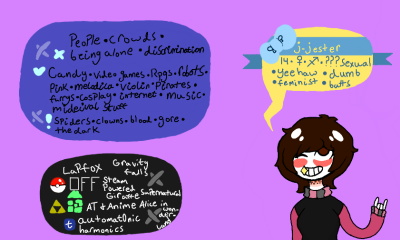 People • crowds •
being alone • discrimination
Candy • video games • Frogs • robots •
Pink • melodica • violin • Pirates •
furrys • cosplay • internet • music •
mideival stuff
Spiders • clowns • blood • gore •
the dark
j-jester
14 • ♀ • ♐ • ???sexual
• Yeehaw • dumb
• feminist • butts
LaPfox Gravity falls
OFF Steam Powered Giraffe Supernatural
AT • Anime Alice in
automatonic
harmonics